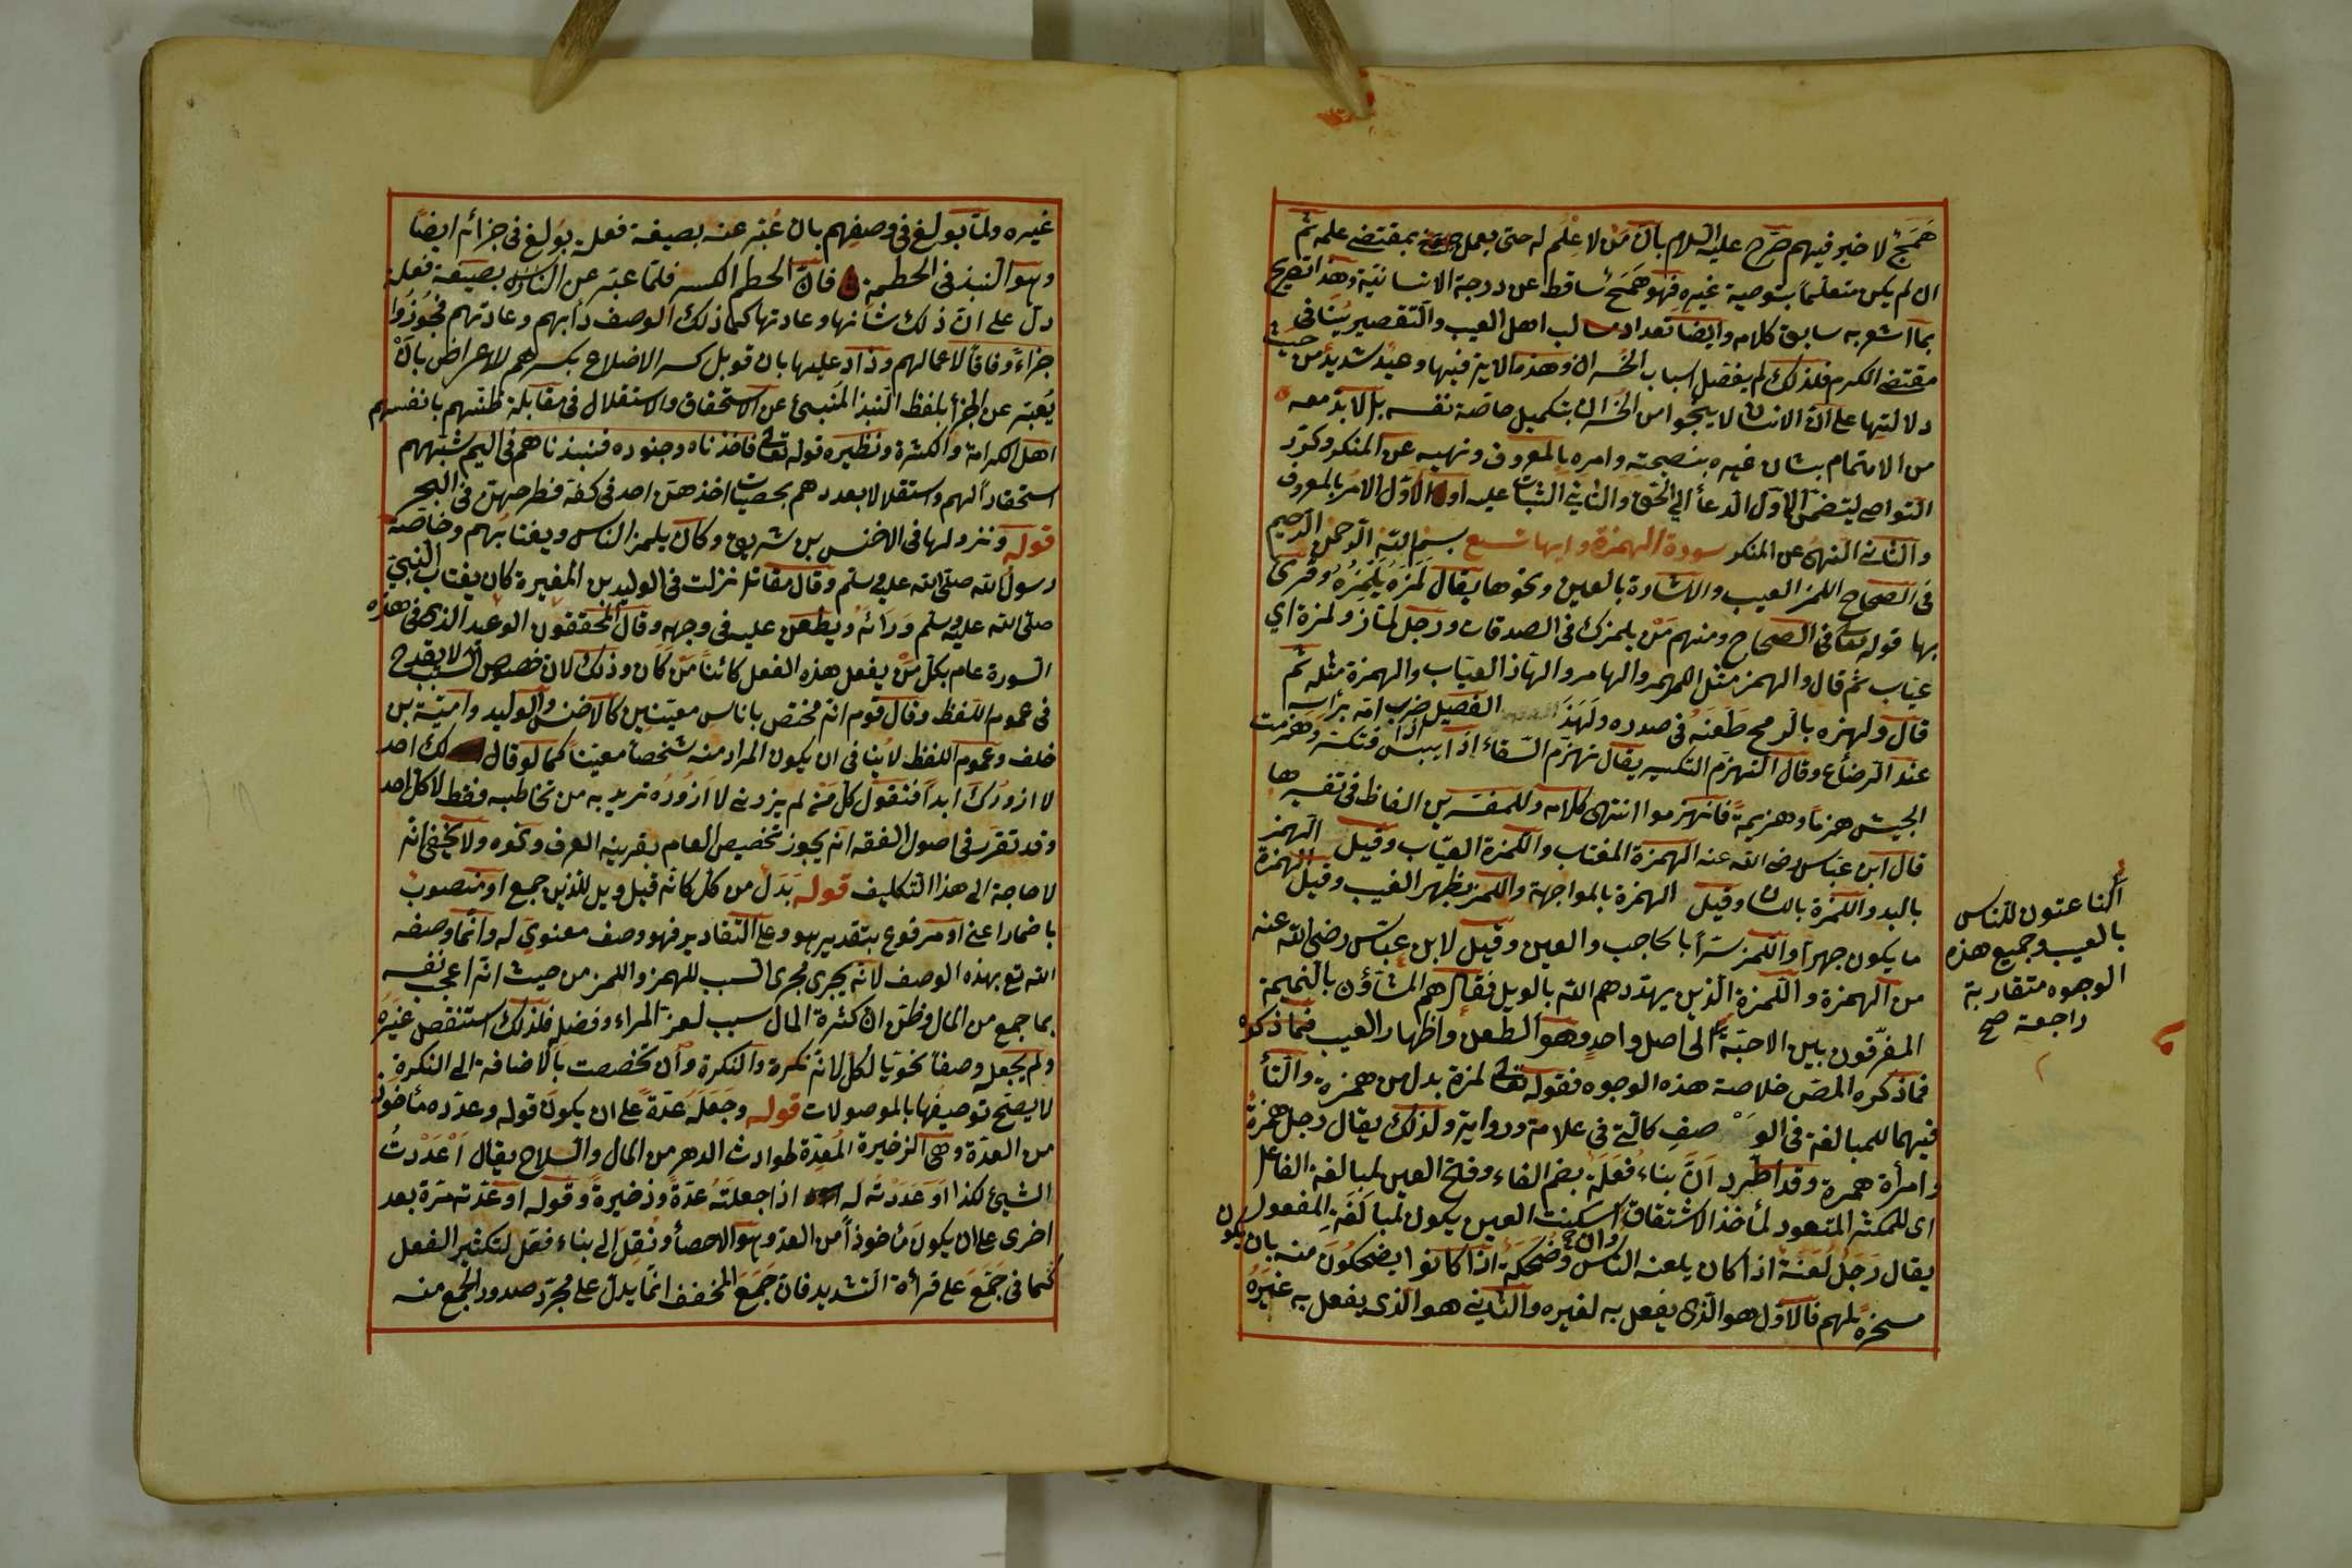 همج لا خير فيهم صرح عليه السلام بان من لا علم له حتى يعمل بمقتضى علمه ثم
ان لم يكن متعلما بتوصية غيره فهو همج ساقط عن درجة الانسانية وهذا تصريح
بما اشعر به سابق كلامه وايضا تعداد مثالب اهل العيب والتقصير ينافى
مقتضى الكرم فلذلك لم يفصل اسباب الخسران وهذه الاية فيها وعيد شديد من حيث
دلالتها على ان الانسان لا ينجو من الخسران بتكميل خاصة نفسه بل لا بد معه
من الاهتمام بشان غيره بنصيحته وامره بالمعروف ونهيه عن المنكر وكرر
التواصى ليتضمن الاول الدعأ الى الحق والثانى الثبات عليه او الاول الامر بالمعروف
والثانى النهى عن المنكر سورة الهمزة وايها تسع بسم الله الرحمن الرحيم
فى الصحاح اللمز العيب والاشارة بالعين ونحوها يقال لمزه يلمزه وقرئ
بها قوله تعا فى الصحاح ومنهم من يلمزك فى الصدقات ورجل لماز ولمزة اي
عياب ثم قال والهمز مثل اللمز والهامز والهماز العياب والهمزة مثله ثم
قال ولهزه بالرمح طعنه فى صدره ولهز الفصيل ضرب امه برأسه
عند الرضاع وقال التهزم التكسر يقال تهزم السقاء اذا يبس فتكسر وهزمت
الجيش هزما وهزيمة فانهزموا انتهى كلامه وللمفسرين الفاظ فى تفسيرها
قال ابن عباس رضى الله عنه الهمزة المغتاب واللمزة العياب وقيل الهمز
باليد واللمزة باللسان وقيل الهمزة بالمواجهة واللمز بظهر الغيب وقيل الهمزة
ما يكون جهرا واللمز سرا بالحاجب والعين وقيل لابن عباس رضى الله عنه
من الهمزة واللمزة الذين يهددهم الله بالويل فقال هم المشاؤن بالنميمة
المفرقون بين الاحبة الى اصل واحد وهو الطعن واظهار العيب فما ذكره
فما ذكره المص خلاصة هذه الوجوه فقوله تعالى لمزة بدل من همزة والتأ
فيهما للمبالغة فى الوصف كالتى فى علامة ورواية ولذلك يقال رجل همزة
وامرأة همزة وقد اطرد ان بناء فعلة بضم الفاء وفتح العين لمبالغة الفاعل
اى للمكثر المتعود لمأخذ الاشتقاق وان اسكنت العين يكون لمبالغة المفعول
يقال رجل لعنة اذا كان يلعنه الناس وضحكة اذا كانوا يضحكون منه بان يكون
مسخرة لهم فالاول هو الذى يفعل به لغيره والثانى هو الذى يفعل به غيره
الناعتون للناس
بالعيب وجميع هذه
الوجوه متقاربة
راجعة صح
غيره ولما بولغ فى وصفهم بان عبر عنه بصيغة فعلة بولغ فى جزائهم ايضا
وهو النبذ فى الحطمة فان الحطم الكسر فلما عبر عن النار بصيغة فعلة
دل على ان ذلك شأنها وعادتها كما ذلك الوصف دأبهم وعادتهم فجوزوا
جزاء وفاقا لاعمالهم وزاد عليها بان قوبل كسر الاضلاع بكسرهم لاعراض بان
يعبر عن الجزأ بلفظ النبذ المنبئ عن الاستحقار والاستقلال فى مقابلة ظنهم بانفسهم
اهل الكرامة والكثرة ونظيره قوله تعالى فاخذناه وجنوده فنبذناهم فى اليم شبههم
استحقارا لهم واستقلالا بعددهم بحصيات اخذهن احد فى كفه فطرحهن فى البحر
قوله ونزولها فى الاخنس بن شريق وكان يلمز الناس ويغتابهم وخاصة
رسول الله صلى الله عليه وسلم وقال مقاتل نزلت فى الوليد بن المغيرة كان يغتاب النبى
صلى الله عليه وسلم ورائه ويطعن عليه فى وجهه وقال المحققون الوعيد الذى فى هذه
السورة عام بكل من يفعل هذه الفعل كائنا من كان وذلك لان خصوص السبب لا يقدح
فى عموم اللفظ وقال قوم انه مختص باناس معينين كالاخنس والوليد وامية بن
خلف وعموم اللفظ لا ينافى ان يكون المراد منه شخصا معينا كما لو قال لك احد
لا ازورك ابدا فتقول كل من لم يزرنى لا ازوره تريد به من تخاطبه فقط لا كل احد
وقد تقرر فى اصول الفقه انه يجوز تخصيص العام بقرينة العرف ونحوه ولا يخفى انه
لا حاجة الى هذا التكليف قوله بدل من كل كانه قيل ويل للذين جمع او منصوب
باضمار اعنى او مرفوع بتقدير هو وعلى التقادير فهو وصف معنوي له وانما وصفه
الله تع بهذه الوصف لانه يجرى مجرى السبب للهمز واللمز من حيث انه اعجب نفسه
بما جمع من المال وظن ان كثرة المال سبب لعز المراء وفضله فلذلك استنقص غيره
ولم يجعله وصفا نحويا لكل لانه نكرة والنكرة وان تخصصت بالاضافة الى النكرة
لا يصح توصيفها بالموصولات قوله وجعله عدة على ان يكون قوله وعدده مأخوذ
من العدة وهى الزخيرة المعدة لحوادث الدهر من المال والسلاح يقال اعددت
الشيئ لكذا او عددته له اذا جعلته عدة وذخيرة وقوله او عده مرة بعد
اخرى على ان يكون مأخوذا من العد وهو الاحصأ ونقل الى بناء فعل لتكثير الفعل
كما فى جمع على قرأة التشديد فان جمع المخفف انما يدل على مجرد صدور الجمع منه